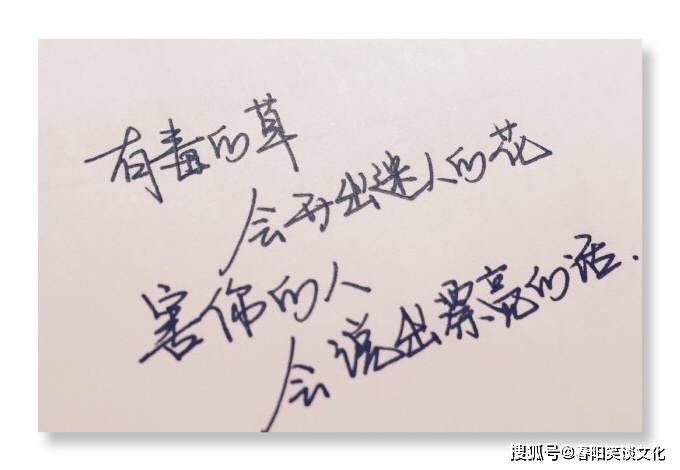 有毒的草
会开出迷人的花
害你的人
会说出漂亮的话.
搜狐号@春阳笑谈文化